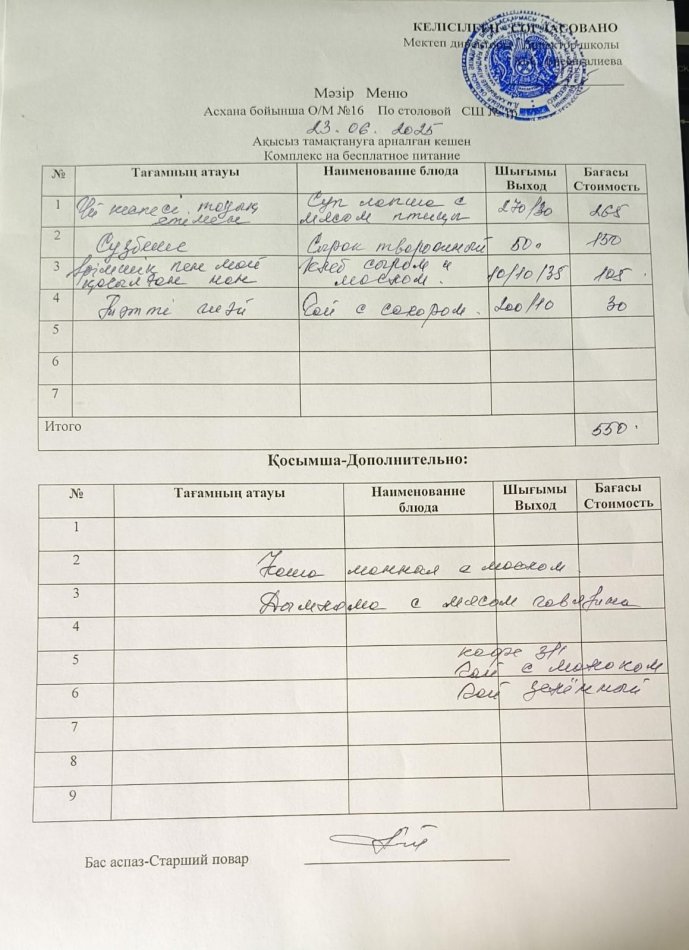 КЕЛІСІЛГЕН - СОГЛАСОВАНО
Мектеп директоры / Директор школы
Мәзір Меню
Асхана бойынша О/М №16 По столовой СШ №16
23. 06. 2025
Ақысыз тамақтануға арналған кешен
Комплекс на бесплатное питание
№ Тағамның атауы Наименование блюда Шығымы Выход Бағасы Стоимость
1 Үй кеспесі тауық етімен Суп лапша с мясом птицы 270/30 265
2 Сүзбеше Сырок творожный 50 150
3 Ірімшік пен май қосылған нан Хлеб сыром и маслом. 10/10/35 105
4 Тәтті шәй Чай с сахаром. 200/10 30
5
6
7
Итого 550
Қосымша-Дополнительно:
№ Тағамның атауы Наименование блюда Шығымы Выход Бағасы Стоимость
1
2 Каша манная с маслом
3 Дымляма с мясом говядина
4
5 кофе 3/1
чай с молоком
6 чай зелённый
7
8
9
Бас аспаз-Старший повар